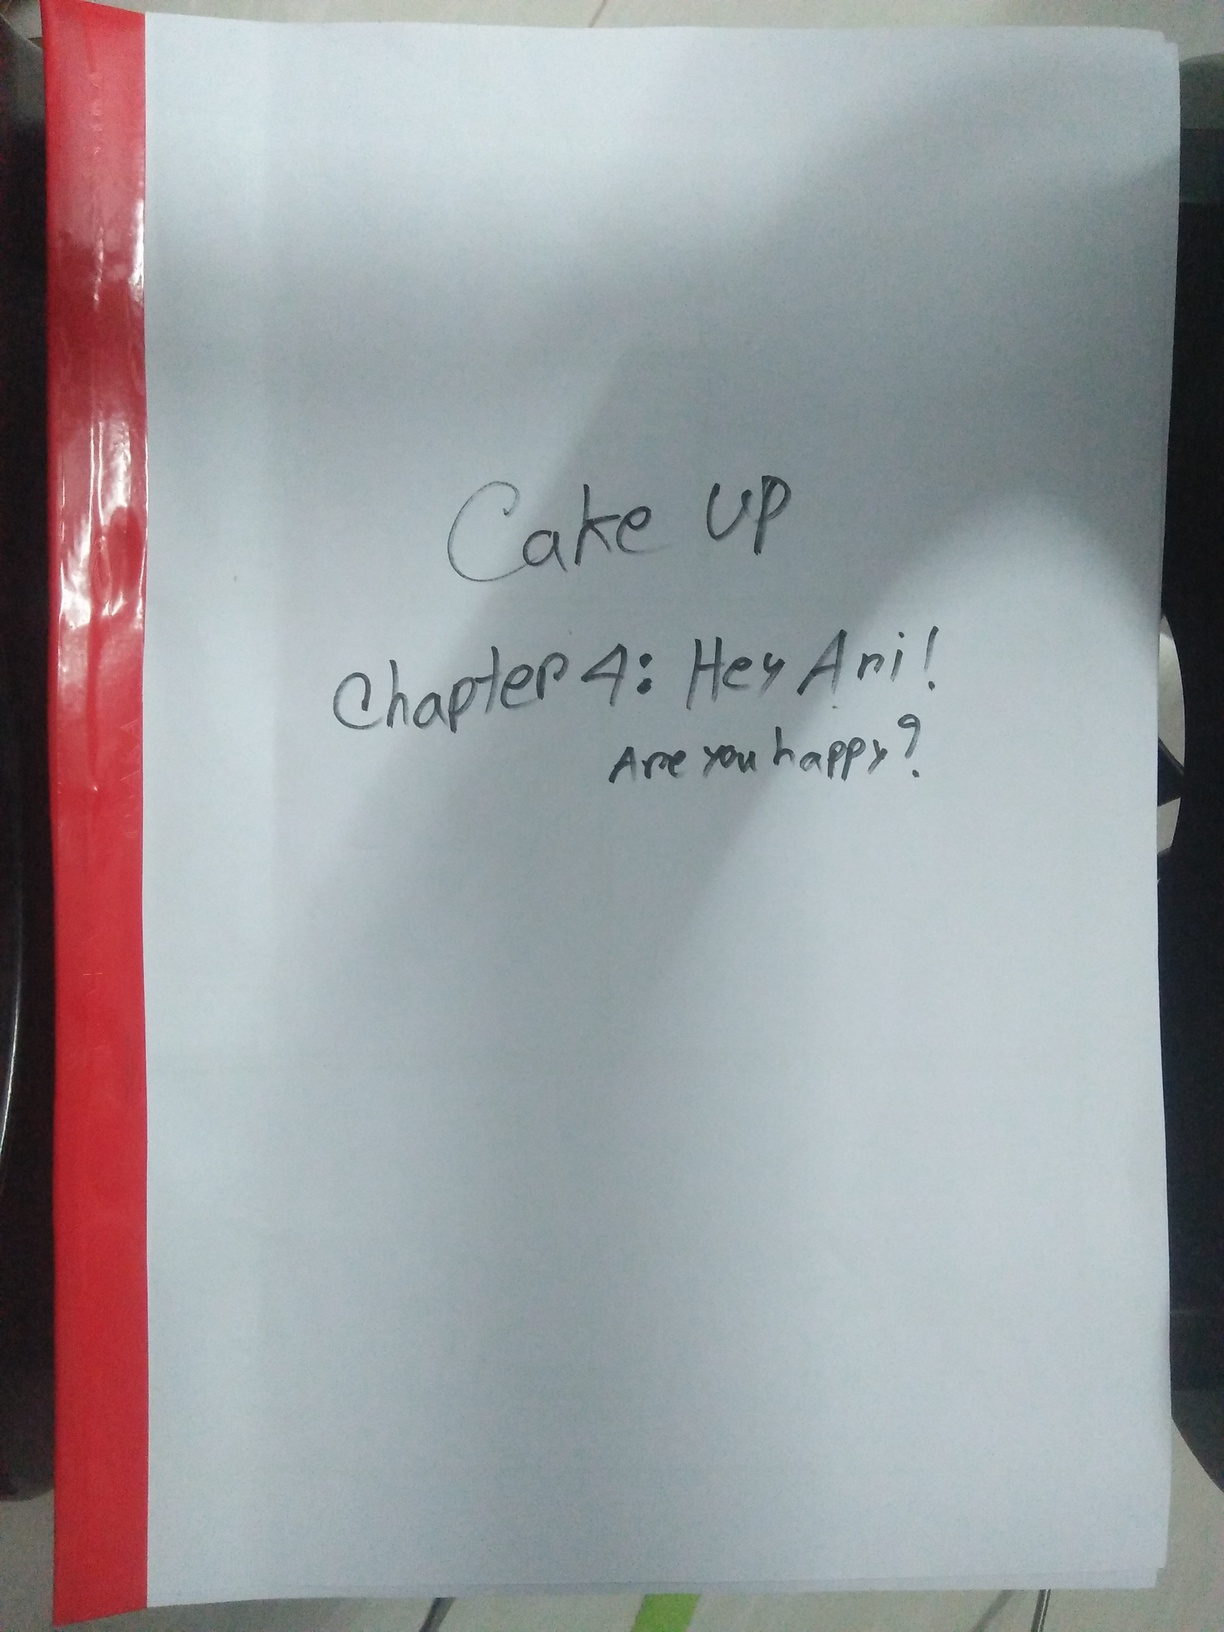 Cake up
Chapter 4: Hey Ari!
Are you happy?